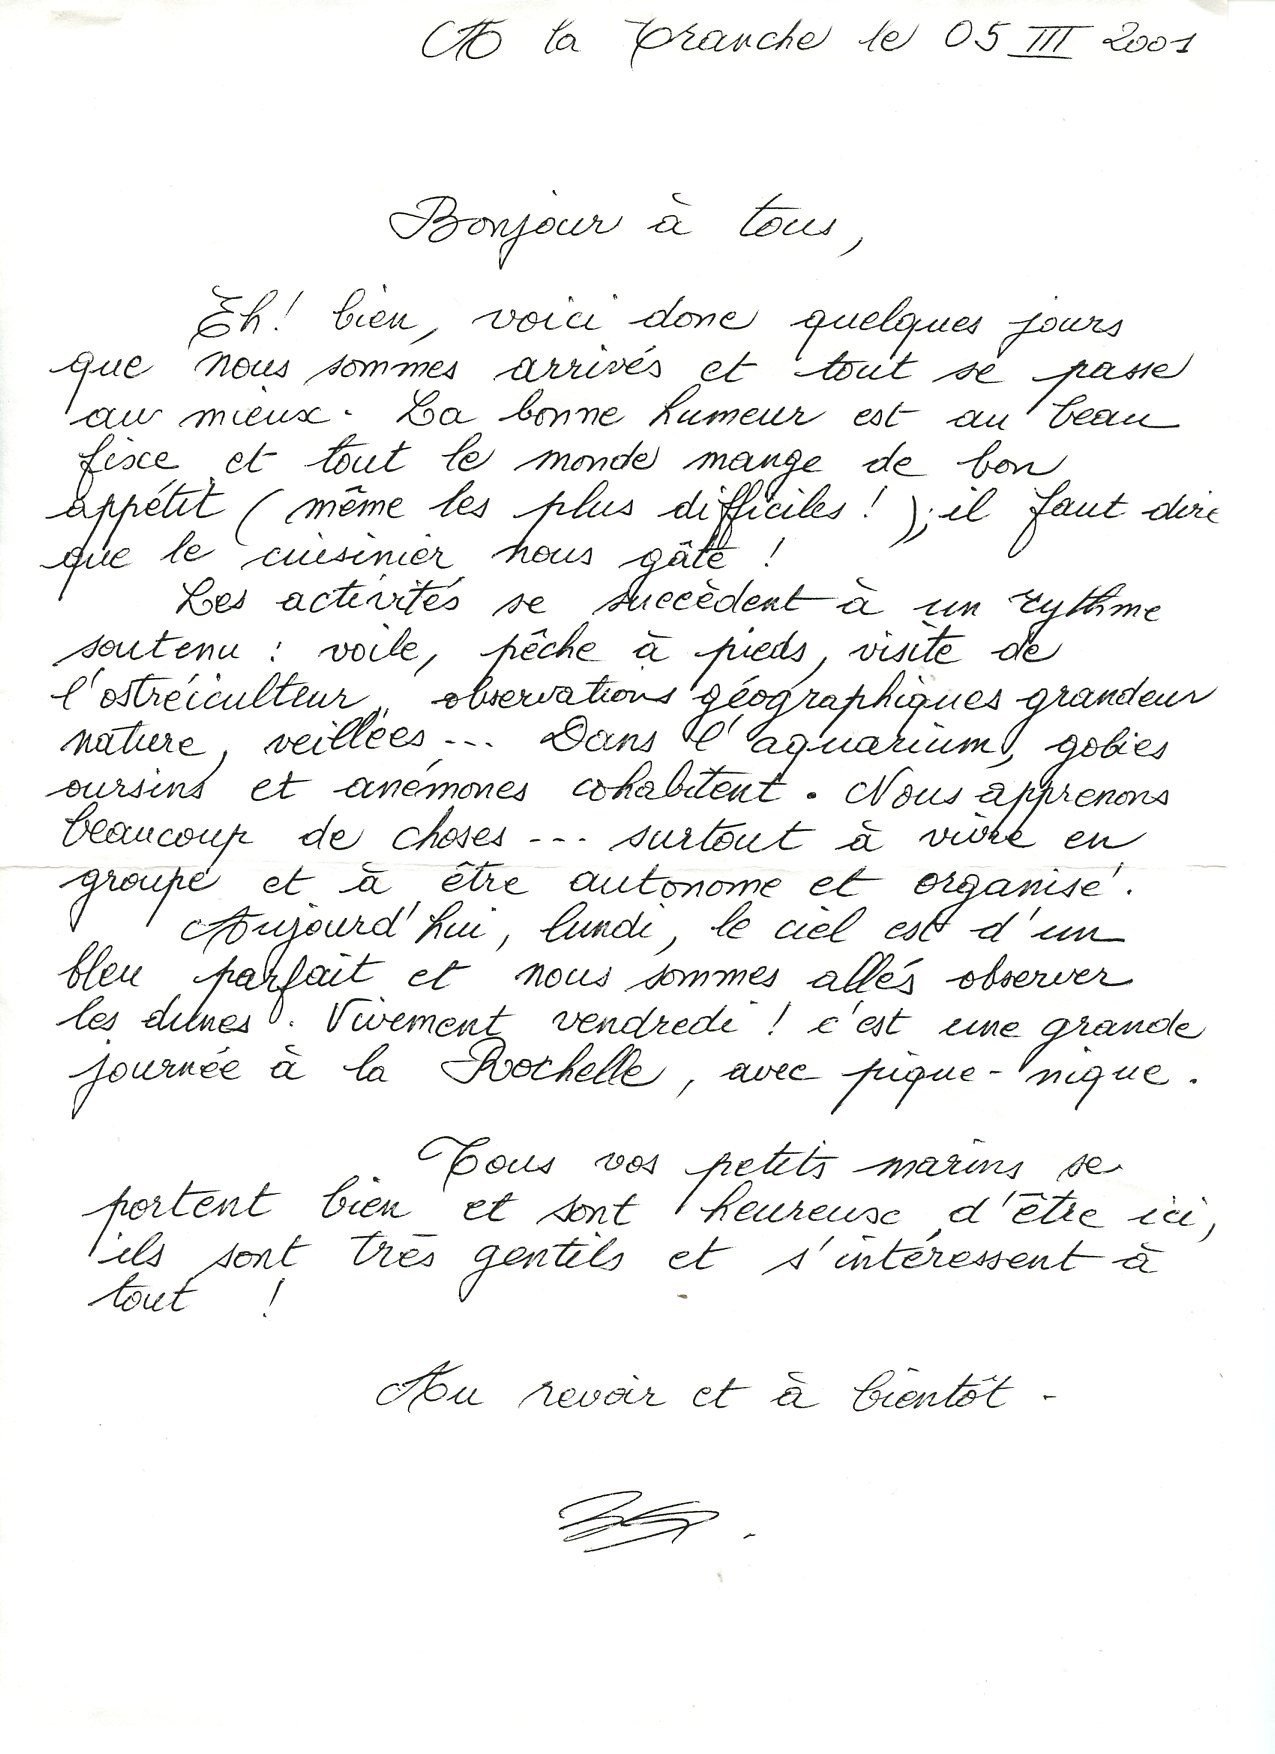 A la Tranche le 05 III 2001
Bonjour à tous,
Eh! bien, voici donc quelques jours
que nous sommes arrivés et tout se passe
au mieux. La bonne humeur est au beau
fixe et tout le monde mange de bon
appétit (même les plus difficiles !); il faut dire
que le cuisinier nous gâte !
Les activités se succèdent à un rythme
soutenu : voile, pêche à pieds, visite de
l'ostréiculteur, observations géographiques grandeur
nature, veillées... Dans l'aquarium, gobies
oursins et anémones cohabitent. Nous apprenons
beaucoup de choses... surtout à vivre en
groupe et à être autonome et organisé.
Aujourd'hui, lundi, le ciel est d'un
bleu parfait et nous sommes allés observer
les dunes. Vivement vendredi ! c'est une grande
journée à la Rochelle, avec pique-nique.
Tous vos petits marins se
portent bien et sont heureux d'être ici,
ils sont très gentils et s'intéressent à
tout !
Au revoir et à bientôt -